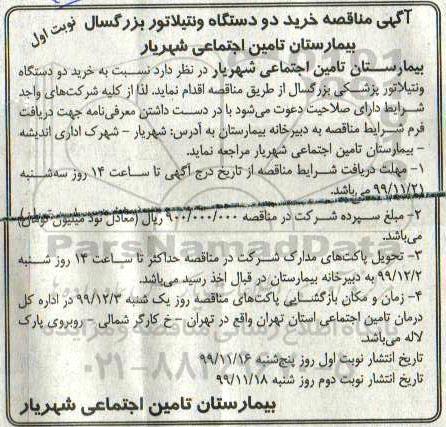 آگهی مناقصه خرید دو دستگاه ونتیلاتور بزرگسال نوبت اول
بیمارستان تامین اجتماعی شهریار
بیمارستان تامین اجتماعی شهریار در نظر دارد نسبت به خرید دو دستگاه
ونتیلاتور پزشکی بزرگسال از طریق مناقصه اقدام نماید. لذا از کلیه شرکت‌های واجد
شرایط دارای صلاحیت دعوت می‌شود با در دست داشتن معرفی‌نامه جهت دریافت
فرم شرایط مناقصه به دبیرخانه بیمارستان به آدرس: شهریار - شهرک اداری اندیشه
- بیمارستان تامین اجتماعی شهریار مراجعه نماید.
۱- مهلت دریافت شرایط مناقصه از تاریخ درج آگهی تا ساعت ۱۴ روز سه‌شنبه
۹۹/۱۱/۲۱ می‌باشد.
۲- مبلغ سپرده شرکت در مناقصه ۹۰۰/۰۰۰/۰۰۰ ریال (معادل نود میلیون تومان)
می‌باشد.
۳- تحویل پاکت‌های مدارک شرکت در مناقصه حداکثر تا ساعت ۱۴ روز شنبه
۹۹/۱۲/۲ به دبیرخانه بیمارستان در قبال اخذ رسید می‌باشد.
۴- زمان و مکان بازگشایی پاکت‌های مناقصه روز یک شنبه ۹۹/۱۲/۳ در اداره کل
درمان تامین اجتماعی استان تهران واقع در تهران - خ کارگر شمالی - روبروی پارک
لاله می‌باشد.
تاریخ انتشار نوبت اول روز پنج‌شنبه ۹۹/۱۱/۱۶
تاریخ انتشار نوبت دوم روز شنبه ۹۹/۱۱/۱۸
بیمارستان تامین اجتماعی شهریار
ParsNamadData